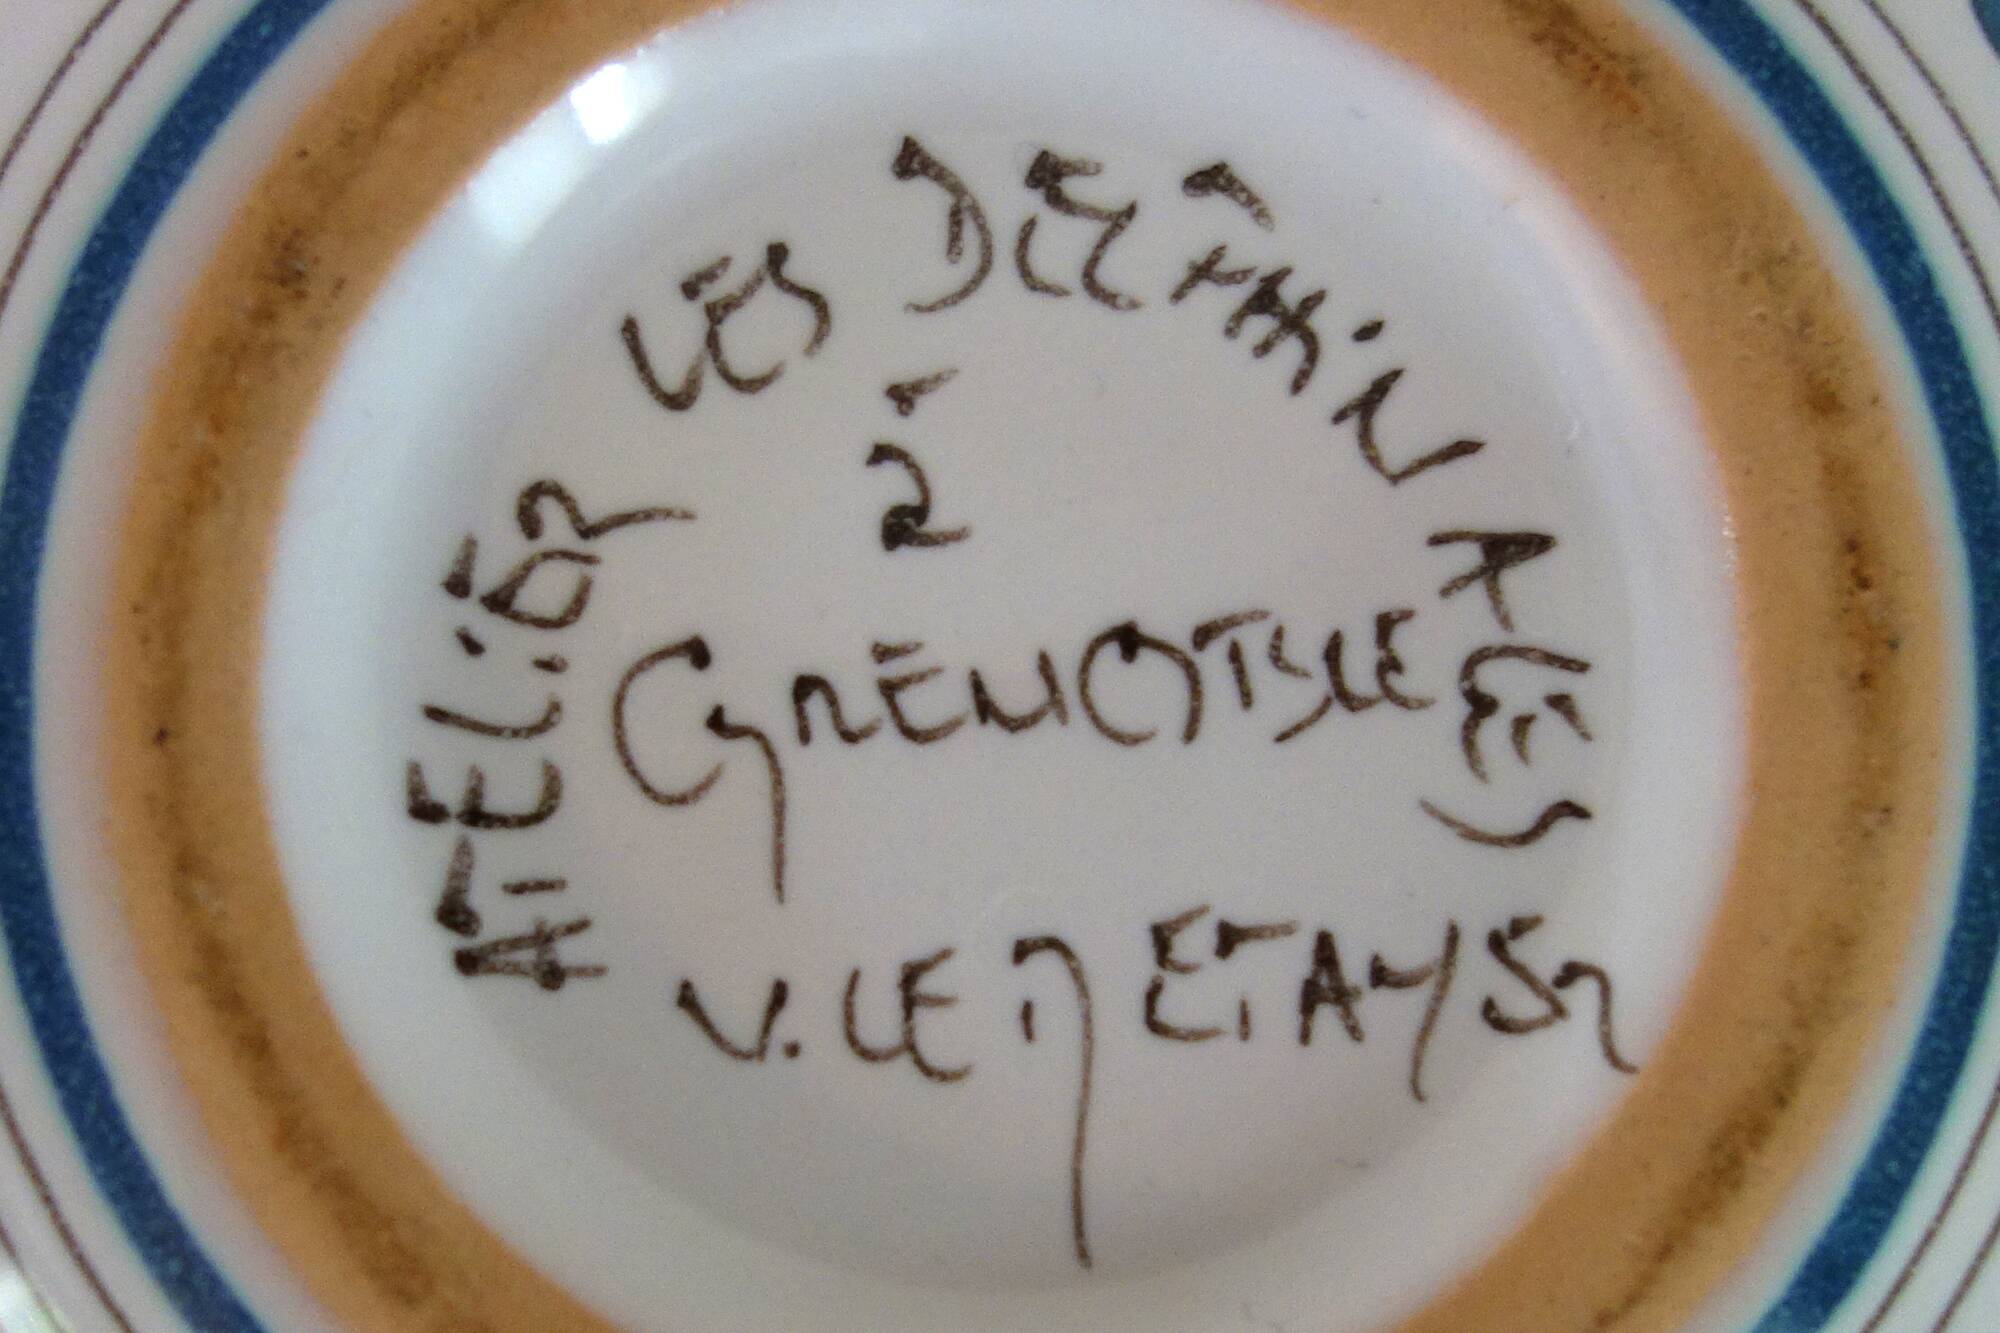 ATELIER LES
à
GRENOBLE
V. LE METAYER